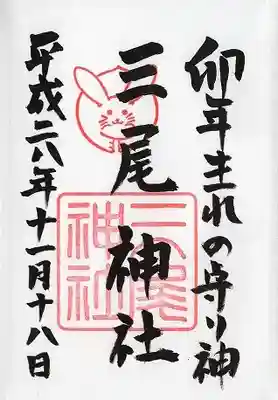 卯年生れの守り神
三尾神社
三尾神社
平成二八年十一月十八日